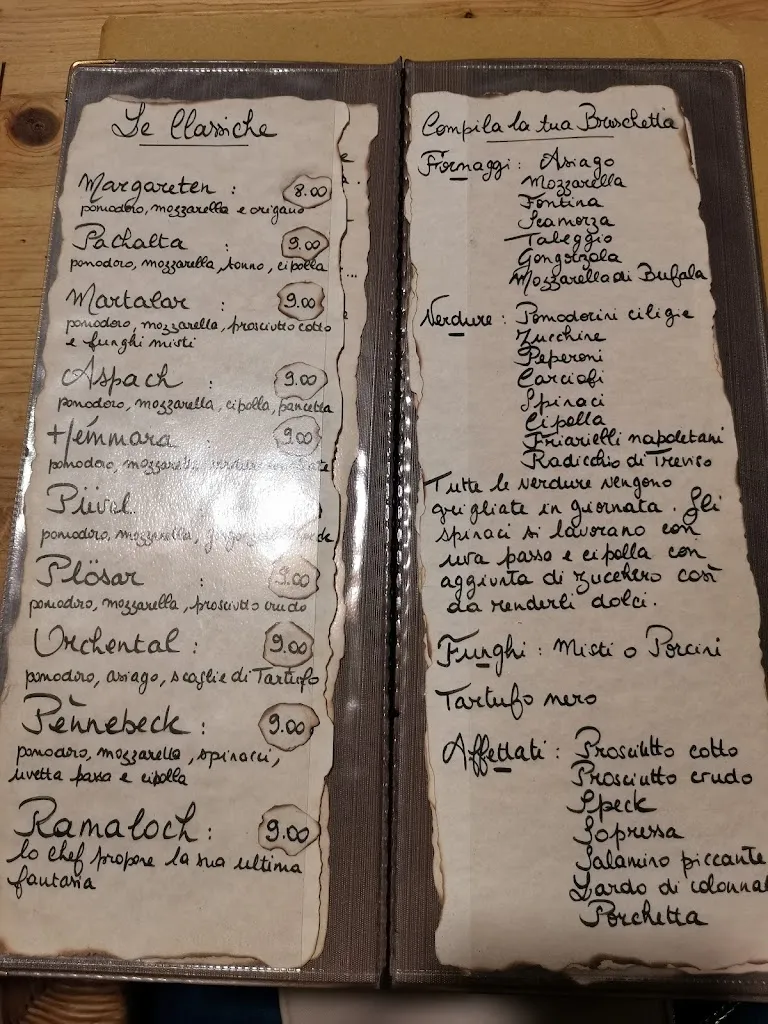 Le Classiche
Margareten : 8.00
pomodoro, mozzarella e origano
Pachalta : 9.00
pomodoro, mozzarella, tonno, cipolla
Martalar : 9.00
pomodoro, mozzarella, prosciutto cotto
e funghi misti
Aspach : 9.00
pomodoro, mozzarella, cipolla, pancetta
Hémmara : 9.00
pomodoro, mozzarella, verdure
Püvel
pomodoro, mozzarella,
Plösar : 9.00
pomodoro, mozzarella, prosciutto crudo
Orchental : 9.00
pomodoro, asiago, scaglie di Tartufo
Pènnebeck : 9.00
pomodoro, mozzarella, spinaci,
uvetta passa e cipolla
Ramaloch : 9.00
lo chef propone la sua ultima
fantasia
Compila la tua Bruschetta
Formaggi : Asiago
Mozzarella
Fontina
Scamorza
Taleggio
Gongonzola
Mozzarella di Bufala
Verdure : Pomodorini ciligie
Zucchine
Peperoni
Carciofi
Spinaci
Cipolla
Friarielli napoletani
Radicchio di Treviso
Tutte le verdure vengono
grigliate in giornata. Gli
spinaci si lavorano con
uva passa e cipolla con
aggiunta di zucchero così
da renderli dolci.
Funghi : Misti o Porcini
Tartufo nero
Affettati : Prosciutto cotto
Prosciutto crudo
Speck
Sopressa
Salamino piccante
Lardo di colonna
Porchetta